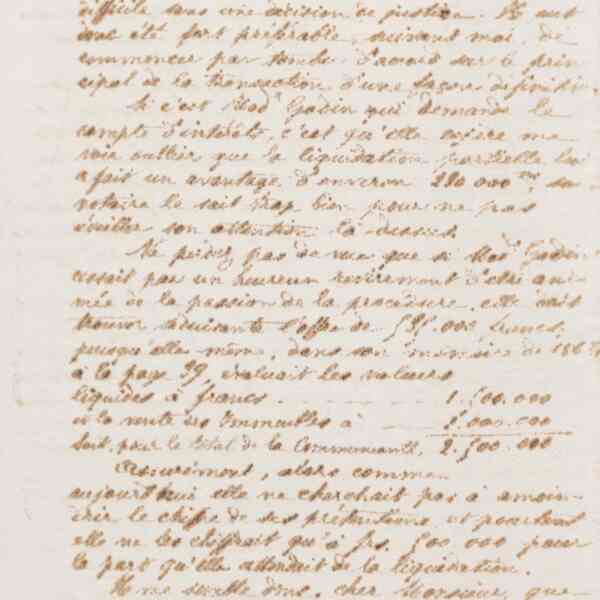 difficile sans une décision de justice. Il eut
donc été fort préférable, suivant moi, de
commencer par tomber d'accord sur le prin-
cipal de la transaction d'une façon définitive.
Si c'est Mad. Godin qui demande le
compte d'intérêts, c'est qu'elle espère me
voir oublier que la liquidation partielle lui
a fait un avantage d'environ 220 000 son
notaire le sait trop bien pour ne pas
éveiller son attention là-dessus.
Ne perdez pas de vue que si Mad. Godin
cessait par un heureux revirement d'être ani-
mée de la passion de la procédure, elle
trouver séduisante l'offre de 525.000 francs,
puisqu'elle même, dans son mémoire de 1867,
à la page 29, évaluait les valeurs
liquides à francs. 1.500.000
et la vente des Immeubles à 1.000.000
soit, pour le total de la Communauté, 2.500.000
Assurément, alors comme
aujourd'hui elle ne cherchait pas à amoin-
drir le chiffre de ses prétentions et pourtant
elle ne les chiffrait qu'à frs. 500 000 pour
la part qu'elle attendait de la liquidation.
Il me semble donc, cher Monsieur, que